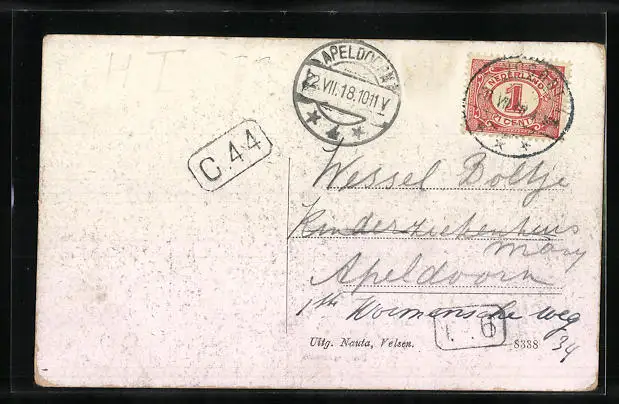 APELDOORN
2 VII.18.10 11 V
1
NEDERLAND
1
CENT
C.44
Wessel Boltje
Kinderziekenhuis
Apeldoorn
1ste Wormensche weg
34
6
Uitg. Nauta, Velsen.
8338